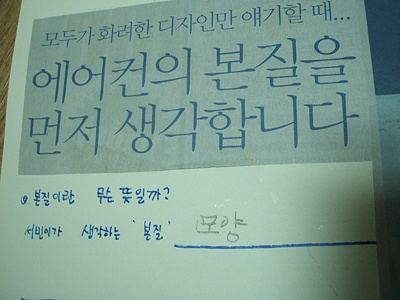 모두가 화려한 디자인만 얘기할 때...
에어컨의 본질을
먼저 생각합니다
◉ 본질이란 무슨 뜻일까?
서빈이가 생각하는 '본질' 모양